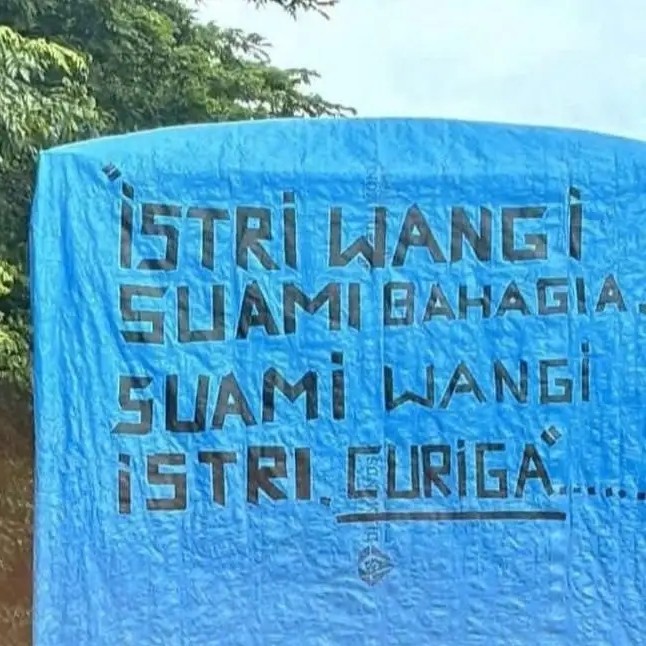 "iSTRi WANGi
SUAMI BAHAGIA.
SUAMi WANGi
iSTRI. CURiGA"......